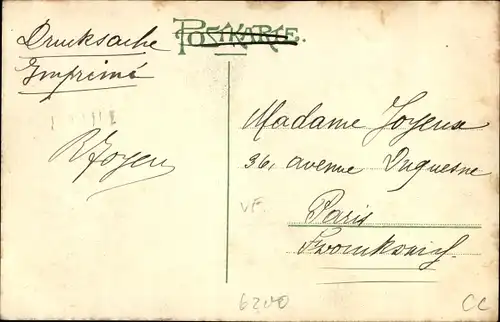 POSTKARTE.
Drucksache
Imprimé
Madame Joyeux
36, avenue Duquesne
Paris
Frankreich
VF
6200
CC